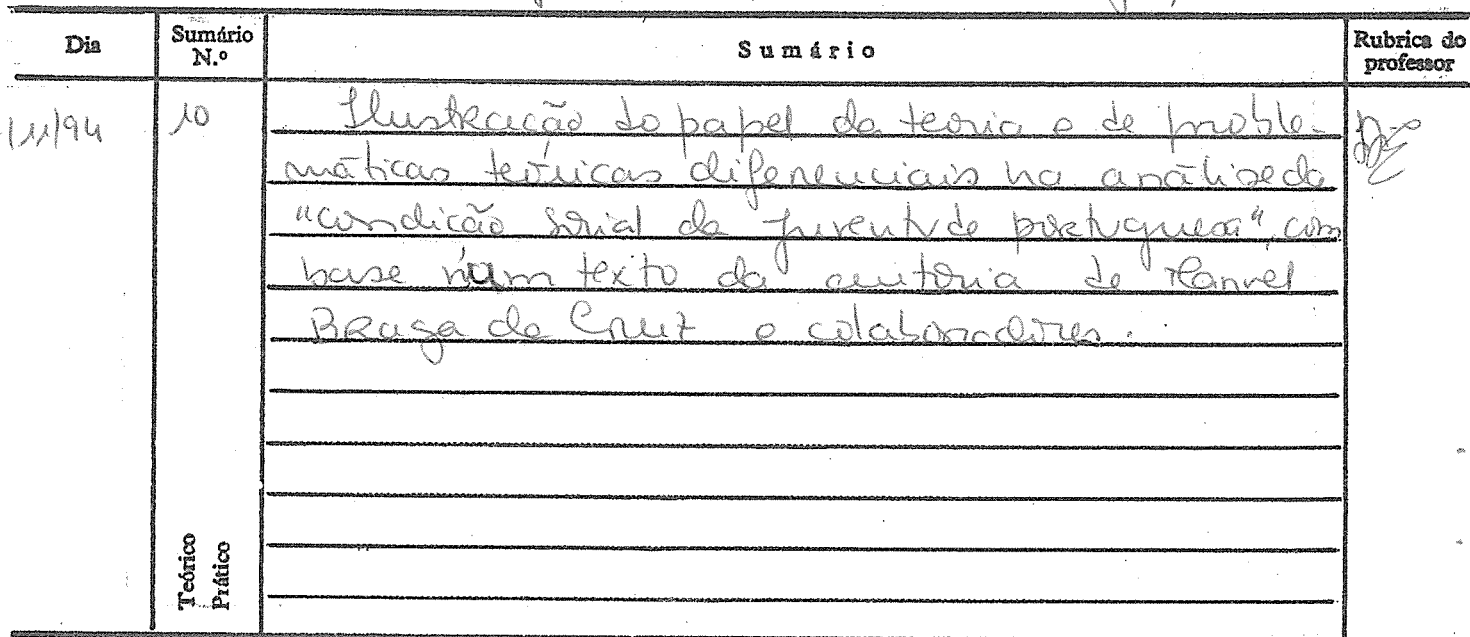 Dia
Sumário N.º
Sumário
Rubrica do professor
/11/94
10
Ilustração do papel da teoria e de proble-
máticas teóricas diferenciais na análise da
"condição social da juventude portuguesa", com
base num texto da autoria de Manuel
Braga da Cruz e colaboradores.
Teórico
Prático